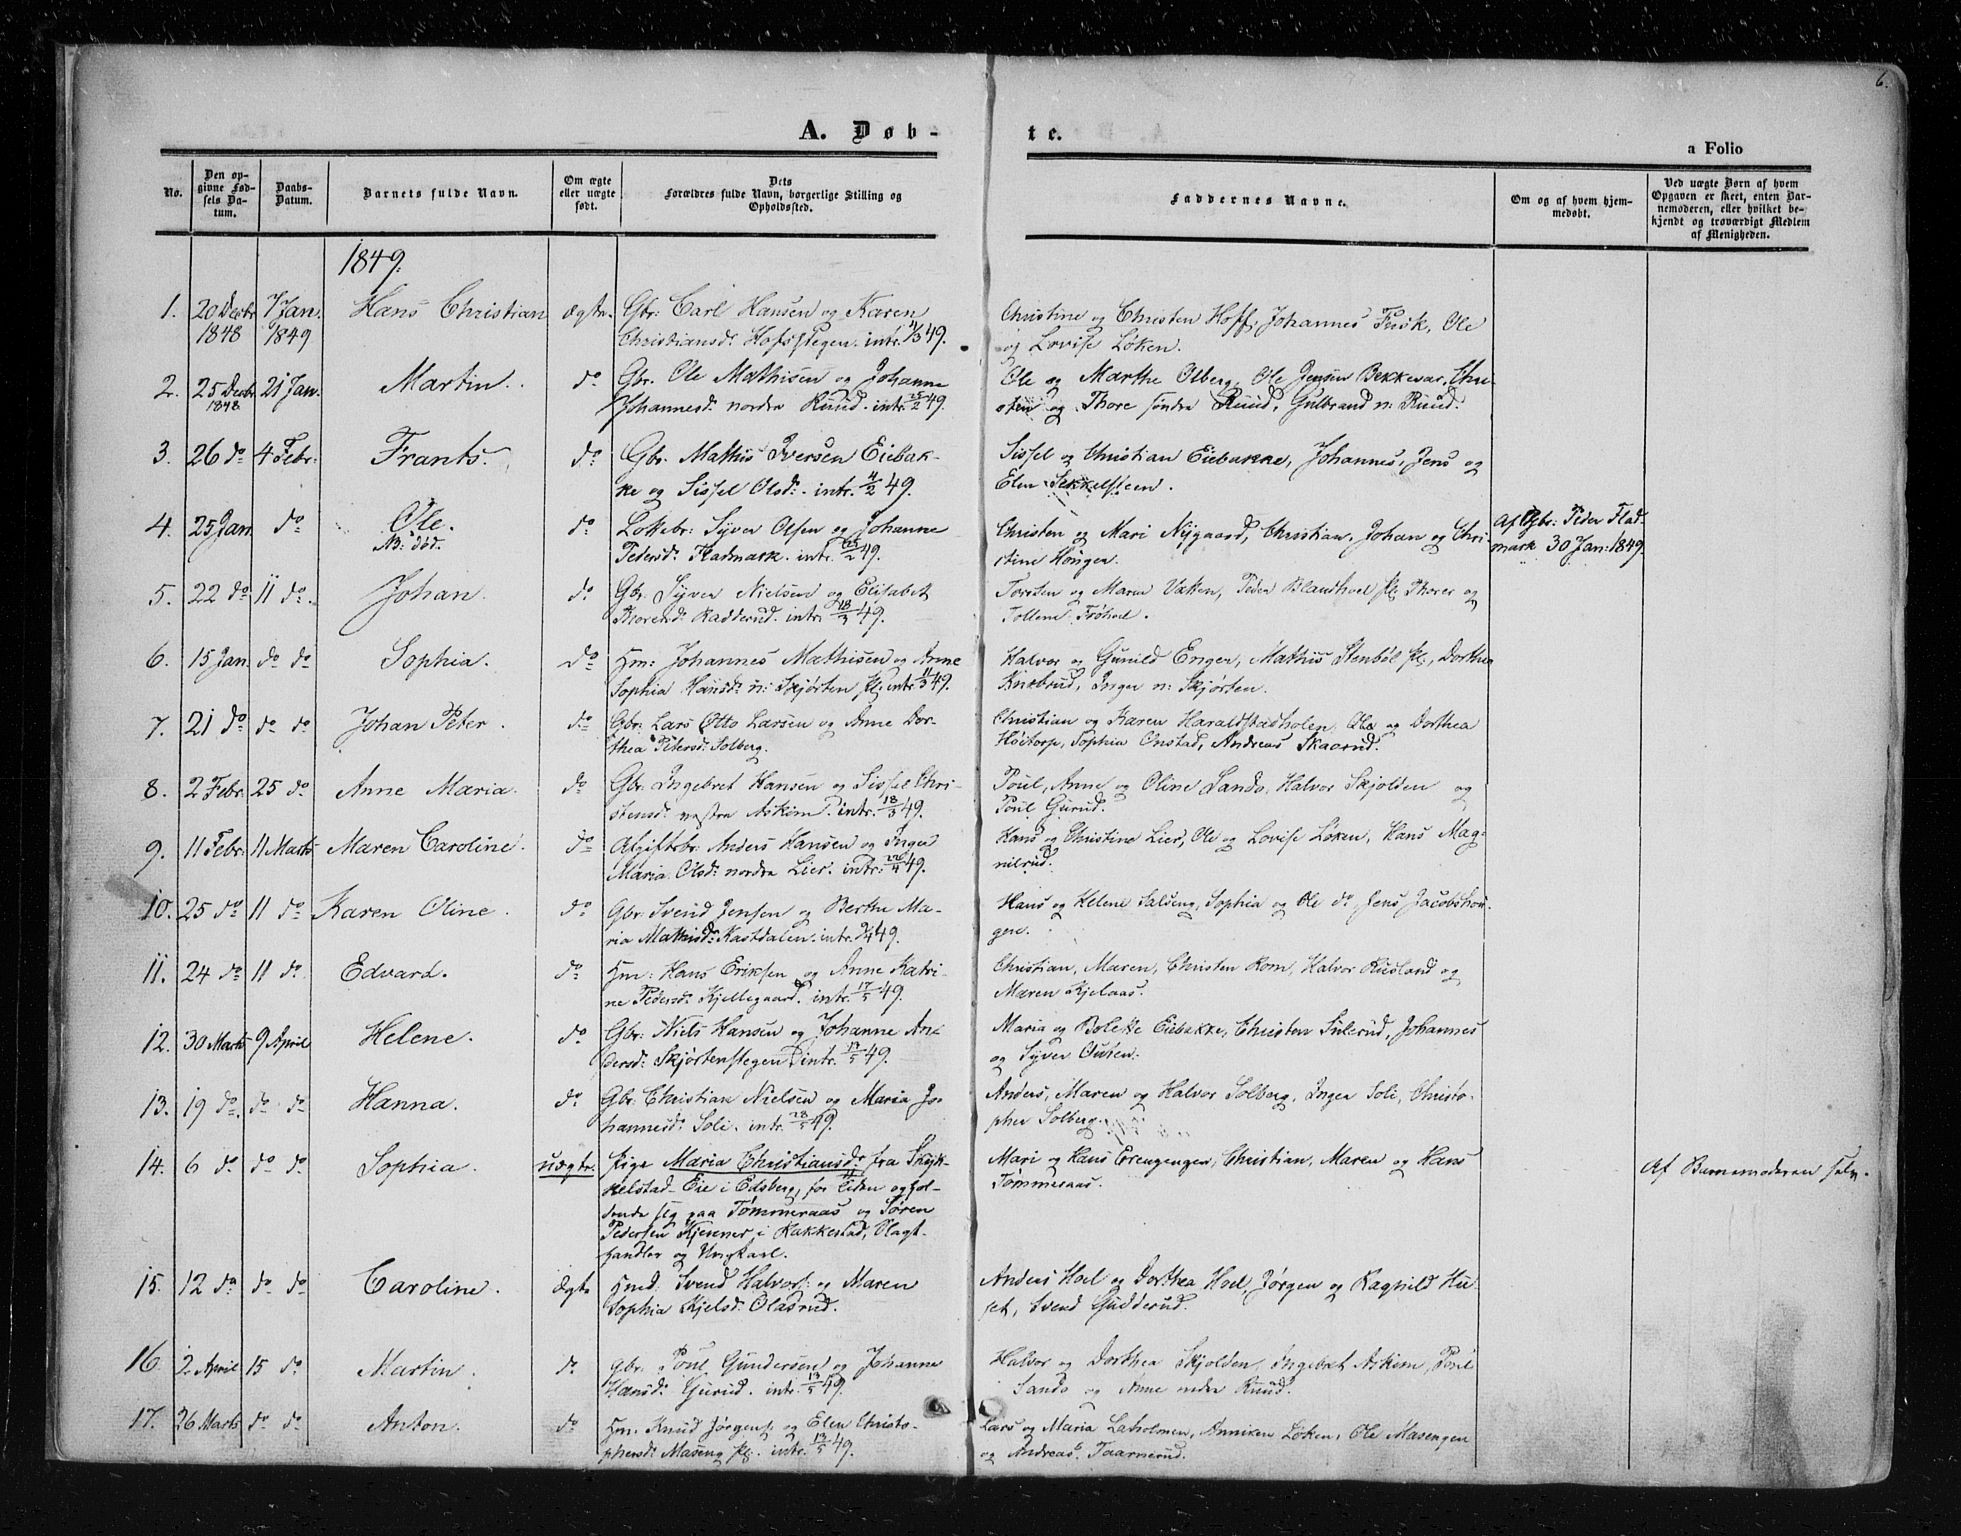 6.
A. Døb-
te.
a Folio
No.
Den op-
givne Fød-
sels Da-
tum.
Daabs-
Datum.
Barnets fulde Navn.
Om ægte
eller uægte
født.
Dets
Forældres fulde Navn, borgerlige Stilling og
Opholdssted.
Faddernes Navne.
Om og af hvem hjem-
medøbt.
Ved uægte Børn af hvem
Opgaven er skeet, enten Bar-
nemoderen, eller hvilket be-
kjendt og troværdigt Medlem
af Menigheden.
1849.
1. 20 Decbr 7 Jan. Hans Christian ægte. Gbr: Carl Hansen og Karen
1848 1849 Christiansd: Hofsstegen. intr. 49.
Christine og Christen Hoff, Johannes Fusk, Ole
og Lovise Løken.
2. 25 Decbr 21 Jan. Martin. do Gbr. Ole Mathisen og Johanne
1848 Johannesd: nordre Ruud. intr. 25/2 49.
Ole og Marthe Olberg, Ole Jensen Bekkevar, Chri-
sten og Thore søndre Ruud, Gulbrand n: Ruud.
3. 26 do 4 Febr: Frants. do Gbr. Mathis Iversen Eiebak-
ke og Sissel Olsd: intr. 4/2 49.
Sissel og Christian Eiebakke, Johannes, Jens og
Elen Sekkelsteen.
4. 25 Jan. do Ole. do Lottebr: Syver Olsen og Johanne
NB: død. Pedersd: Fladmark. intr. 49.
Christen og Mari Nygaard, Christian, Johan og Chri-
stine Hougen.
Af Gbr: Peder Flad-
mark 30 Jan: 1849.
5. 22 do 11 do. Johan. do Gbr. Syver Nielsen og Elisabet
Thoresd: Radderud. intr. 18/3 49.
Torsten og Maren Vaken, Peder Blandhoel pl: Thorer og
Tollem Frøhoel.
6. 15 Jan. do do Sophia. do Hm: Johannes Mathisen og Anne
Sophia Hansd: n: Skjørten pl: intr. 49.
Halvor og Gunild Enger, Mathis Stenbøl pl:, Dorthea
Knebrud, Inger n: Skjørten.
7. 21 do do do Johan Peter. do Gbr: Lars Otto Larsen og Anne Dor-
thea Petersd: Solberg.
Christian og Karen Haraldstadholen, Ole og Dorthea
Høitorp, Sophia Onstad, Andreas Skaarud.
8. 2 Febr. 25 do Anne Maria. do Gbr. Ingebret Hansen og Sissel Chri-
stensd: vestre Askim. intr. 18/3 49.
Poul, Anne og Oline Sando, Halvor Skjolden og
Poul Gurud.
9. 11 Febr. 11 Marts Maren Caroline. do Afgiftsbr: Anders Hansen og Inger
Maria Olsd: nordre Lier. intr: 22/4 49.
Hans og Christine Lier, Ole og Lovise Løken, Hans Mag-
nilrud.
10. 25 do 11 do Karen Oline. do Gbr: Svend Jensen og Berthe Ma-
ria Mathisd: Kastdalen. intr. 9/4 49.
Hans og Helene Salseng, Sophia og Ole do Jens Jacobshou-
gen.
11. 24 do 11 do. Edvard. do Hm: Hans Eriksen og Anne Katri-
ne Pedersd: Kjellegaard. intr. 17/5 49.
Christian, Maren, Christen Rom, Halvor Rusland og
Maren Kjelaas.
12. 30 Marts 9 April Helene. do Gbr: Niels Hansen og Johanne An-
dersd: Skjørtenstegen intr. 13/5 49.
Maria og Bolette Eiebakke, Christen Sulerud, Johannes
og Syver Outen.
13. 19 do. do do Hanna. do Gbr: Christian Nielsen og Maria Jo-
hannesd: Soli. intr. 28/5 49.
Anders, Maren og Halvor Solberg, Inger Soli, Christo-
pher Solberg.
14. 6 do do do. Sophia. uægte. Pige Maria Christiansd: fra Skjk-
kelstad-Eie i Edsberg, for Tiden ophol-
dende sig paa Tømmeraas og Søren
Pedersen Kjenner i Rakkestad, Slagt-
handler og Ungkarl.
Mari og Hans Erengengen, Christian, Maren og Hans
Tømmeraas.
Af Barnemoderen selv.
15. 12 do do do Caroline. Ægte Hmd: Svend Halvors: og Maren
Sophia Kjelsd: Olasrud.
Anders Hoel og Dorthea Hoel, Jørgen og Ragnild Hu-
set, Svend Gudderud.
16. 2 April 15 do Martin. do Gbr. Poul Gundersen og Johanne
Hansd: Gurud. intr. 13/5 49.
Halvor og Dorthea Skjolden, Ingebret Askim, Poul
Sando og Anne nedre Ruud.
17. 26 Marts do do Anton. do Hm: Knud Jørgens: og Elen Christo-
phersd: Maseng pl. intr. 13/5 49.
Lars og Maria Laholmen, Anniken Løken, Ole Masengen
og Andreas Taarnerud.